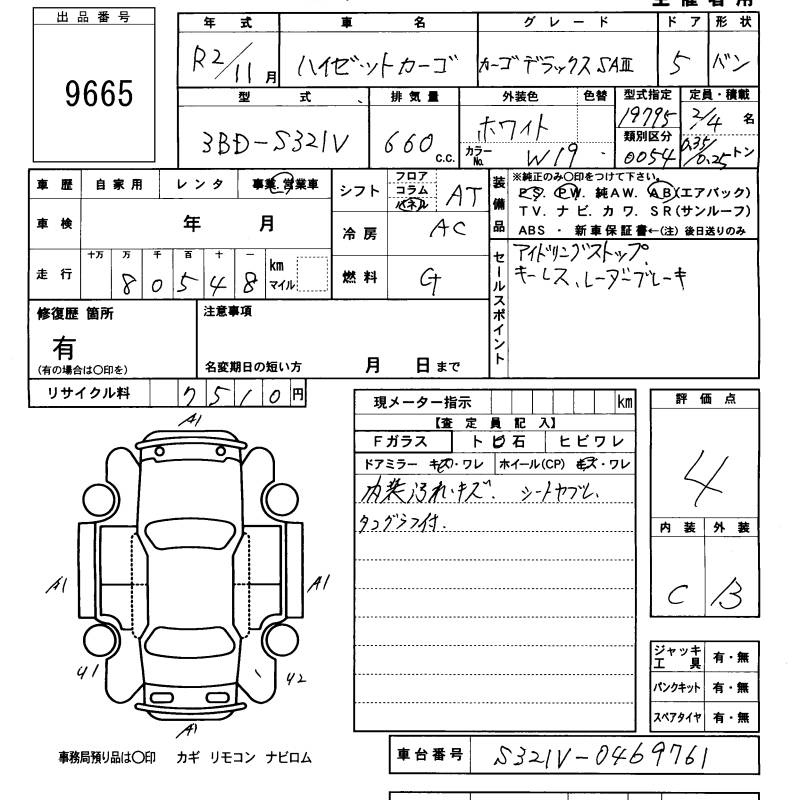 主催者用
出品番号
9665
年式 車名 グレード ドア 形状
R2/11月 ハイゼットカーゴ カーゴデラックスSAⅢ 5 バン
型式 排気量 外装色 色替 型式指定 定員・積載
3BD-S321V 660 c.c. ホワイト 19795 2/4名
カラーNo. W19 類別区分 0054 0.35/0.25トン
車歴 自家用 レンタ 事業.営業車
シフト フロア コラム パネル AT
装備品
※純正のみ〇印をつけて下さい。
PS. PW. 純AW. AB(エアバック)
TV. ナビ. カワ. SR(サンルーフ)
ABS ・ 新車保証書←(注) 後日送りのみ
車検 年 月
冷房 AC
走行 十万 万 千 百 十 一
80548 km マイル
燃料 G
セールスポイント
アイドリングストップ.
キーレス、レーダーブレーキ
修復歴 箇所
有
(有の場合は〇印を)
注意事項
名変期日の短い方 月 日まで
リサイクル料 7510円
現メーター指示 km
【査定員記入】
Fガラス トビ石 ヒビワレ
ドアミラー キズ・ワレ ホイール(CP) キズ・ワレ
内装汚れ・キズ. シートヤブレ.
タコグラフ付.
評価点
4
内装 外装
C B
A1
A1
A1
U1
U2
A1
ジャッキ工具 有・無
パンクキット 有・無
スペアタイヤ 有・無
事務局預り品は〇印 カギ リモコン ナビロム
車台番号 S321V-0469761